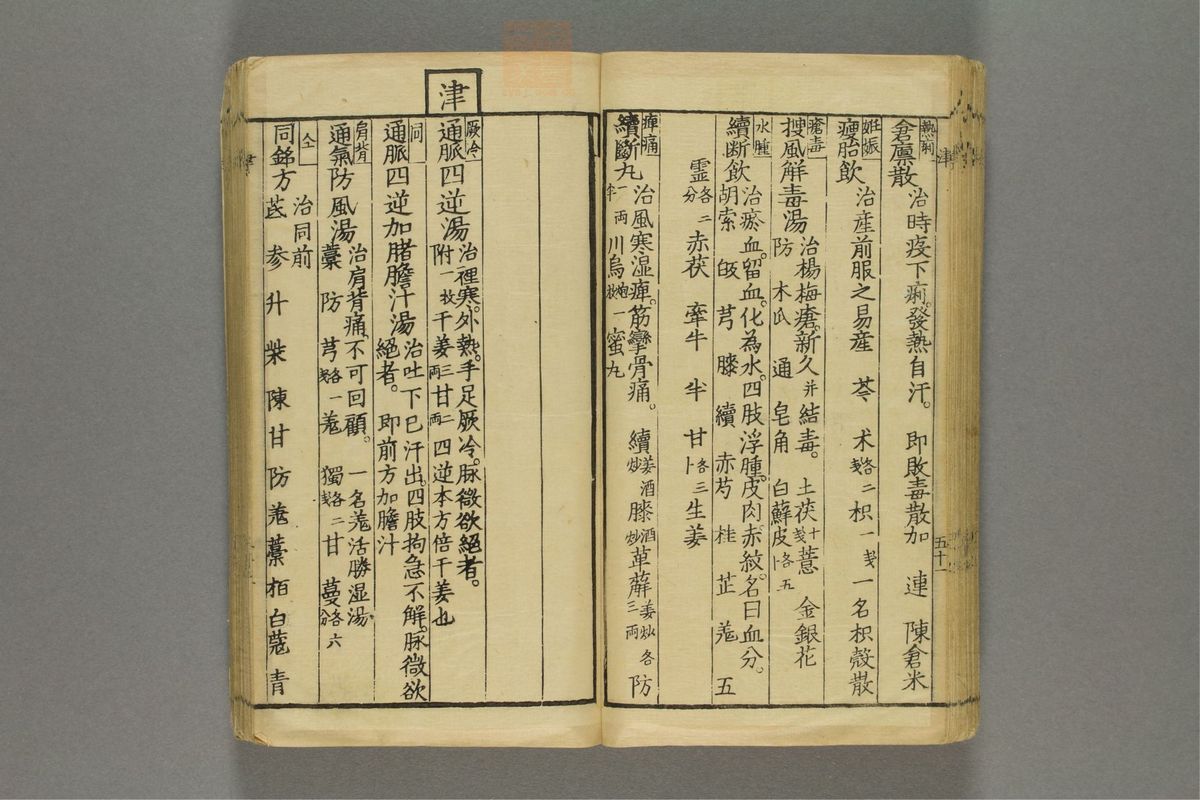 熱痢
倉廩散 治時疫下痢。發熱自汗。 即敗毒散加 連 陳倉米
妊娠
瘦胎飲 治産前服之易産 芩 术各二戔 枳一戔 一名枳殼散
瘡毒
搜風解毒湯 治楊梅瘡。新久并結毒。 土茯十戔 薏 金銀花
防 木瓜 通 皂角 白蘚皮各五卜
水腫
續断飲 治瘀血。留血。化為水。四肢浮腫。皮肉。赤紋。名曰血分。
胡索 皈 芎 膝 續 赤芍 桂 芷 羗 五
霊各二分 赤茯 牽牛 半 甘各三卜 生姜
痺痛
續斷丸 治風寒湿痺。筋攣骨痛。 續姜酒炒 膝酒炒 萆薢姜炒各三両 防
一両半 川烏炮一枚 蜜丸
五十一
津
厥冷
通脈四逆湯 治裡寒。外熱。手足厥冷。脉微欲絕者。
附一枚 干姜三両 甘二両 四逆本方倍干姜也
同
通脈四逆加䐗膽汁湯 治吐下已汗出。四肢拘急不解。脉微欲
絕者。 即前方加膽汁
肩背
通氣防風湯 治肩背痛。不可回顧。 一名羗活勝湿湯。
藁 防 芎各一戔 羗 獨各二戔 甘 蔓各六分
仝
同銻方 治同前
茋 参 升 柴 陳 甘 防 羗 藁 栢 白蔲 青